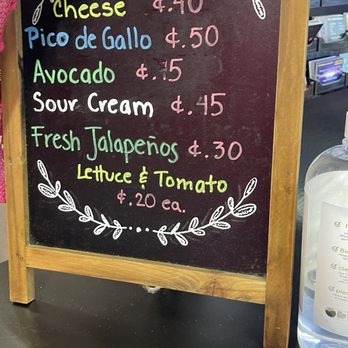 Cheese ¢.40
Pico de Gallo ¢.50
Avocado ¢.75
Sour Cream ¢.45
Fresh Jalapeños ¢.30
Lettuce & Tomato
¢.20 ea.